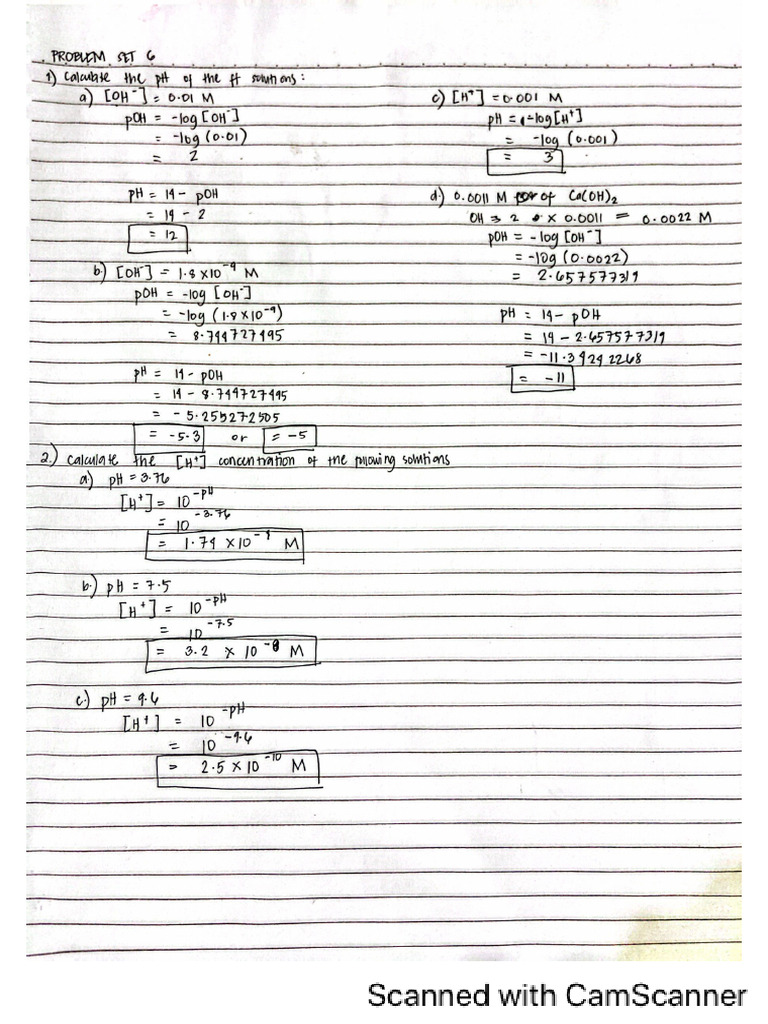 PROBLEM SET 6
1) Calculate the pH of the ff solutions:
a) [OH⁻] = 0.01 M
pOH = -log [OH⁻]
= -log (0.01)
= 2
pH = 14 - pOH
= 14 - 2
= 12
b) [OH⁻] = 1.8 x 10⁻⁹ M
pOH = -log [OH⁻]
= -log (1.8 x 10⁻⁹)
= 8.744727495
pH = 14 - pOH
= 14 - 8.744727495
= - 5.255272505
= -5.3 or = -5
c) [H⁺] = 0.001 M
pH = -log [H⁺]
= -log (0.001)
= 3
d.) 0.0011 M of Ca(OH)₂
OH → 2 x 0.0011 = 0.0022 M
pOH = - log [OH⁻]
= -log (0.0022)
= 2.657577319
pH = 14 - pOH
= 14 - 2.657577319
= -11.34242268
= -11
2.) Calculate the [H⁺] concentration of the following solutions
a.) pH = 3.76
[H⁺] = 10⁻ᵖᴴ
= 10⁻³·⁷⁶
= 1.74 x 10⁻⁴ M
b.) pH = 7.5
[H⁺] = 10⁻ᵖᴴ
= 10⁻⁷·⁵
= 3.2 x 10⁻⁸ M
c.) pH = 9.6
[H⁺] = 10⁻ᵖᴴ
= 10⁻⁹·⁶
= 2.5 x 10⁻¹⁰ M
Scanned with CamScanner